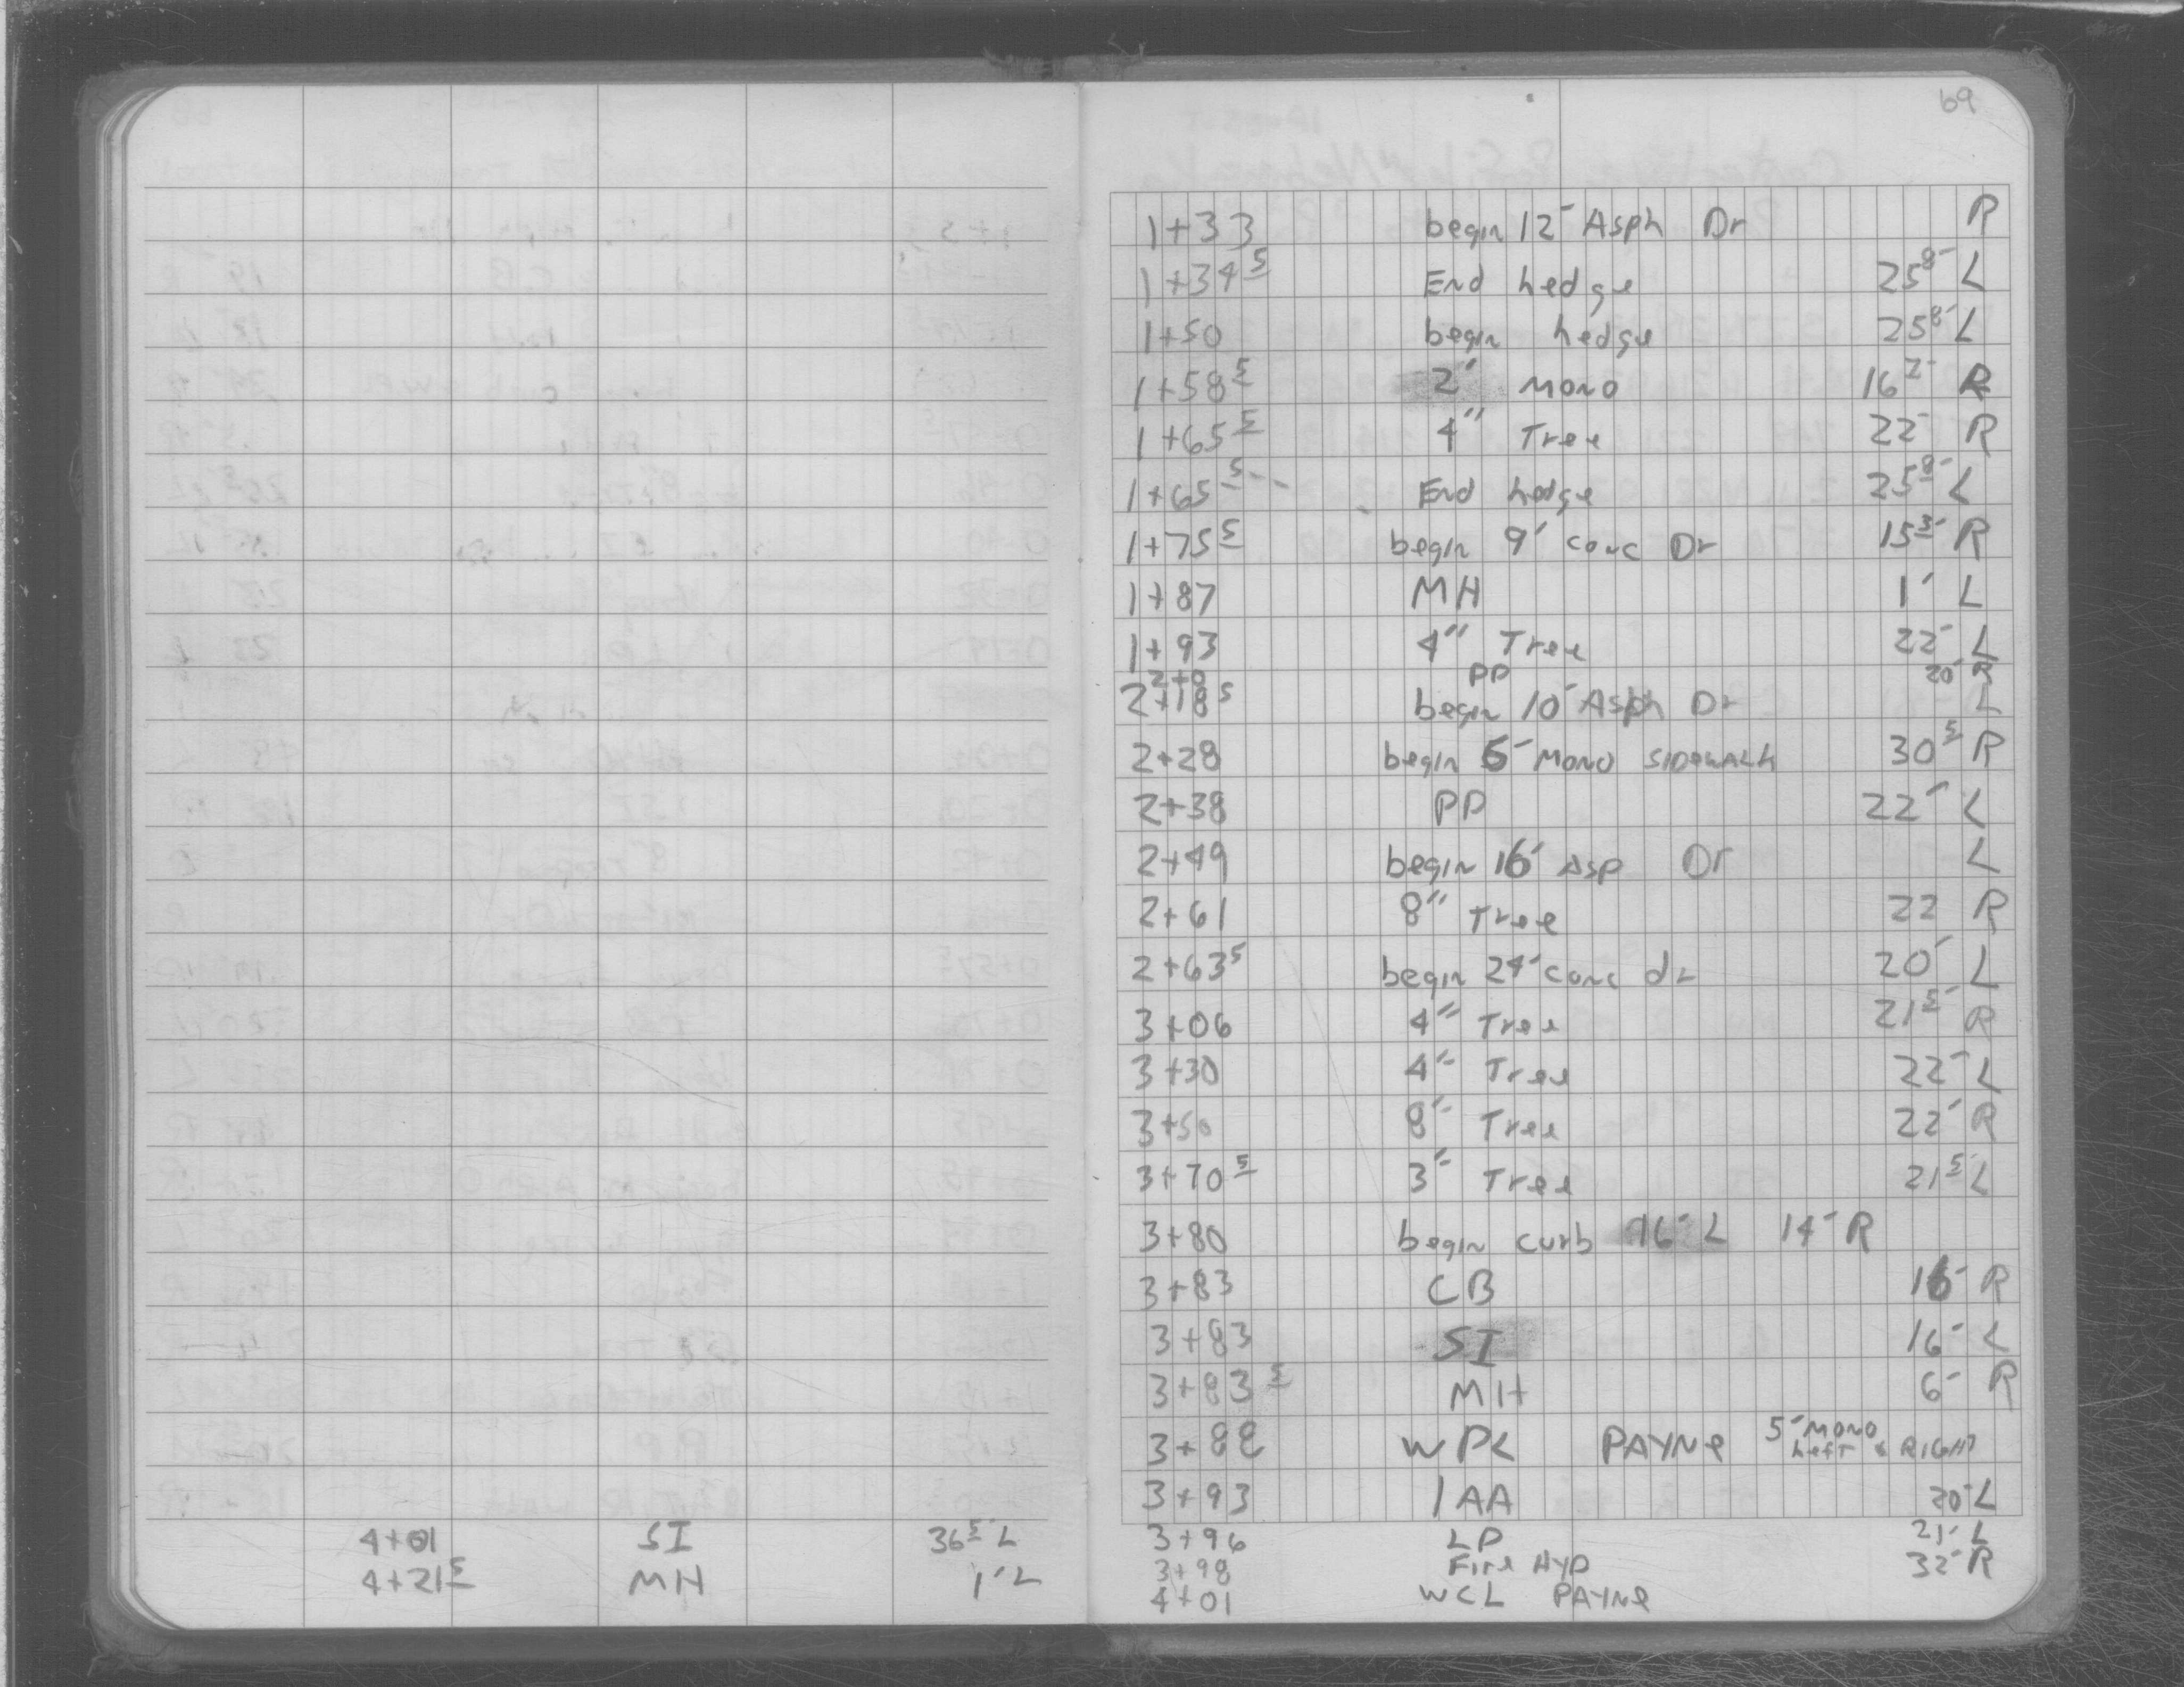 69
1+33 begin 12' Asph Dr R
1+34⁵ End hedge 25⁸' L
1+50 begin hedge 25⁸' L
1+58⁵ 2' Mono 16²' R
1+65⁵ 4" Tree 22' R
1+65⁵ End hedge 25⁸' L
1+75⁵ begin 9' conc Dr 15³' R
1+87 MH 1' L
1+93 4" Tree 22' L
2+0 PP 20' R
2+18⁵ begin 10' Asph Dr L
2+28 begin 5' Mono SIDEWALK 30⁵' R
2+38 PP 22' L
2+49 begin 16' Asp Dr L
2+61 8" Tree 22 R
2+63⁵ begin 24' conc dr 20' L
3+06 4" Tree 21⁵' R
3+30 4" Tree 22' L
3+50 8" Tree 22' R
3+70⁵ 3" Tree 21⁵' L
3+80 begin curb 16' L 14' R
3+83 CB 16' R
3+83 SI 16' L
3+83⁵ MH 6' R
3+88 WPL PAYNE 5' MONO Left & RIGHT
3+93 1AA 20' L
3+96 LP 21' L
3+98 Fire HYD 32' R
4+01 WCL PAYNE
4+01 SI 36⁵' L
4+21⁵ MH 1' L